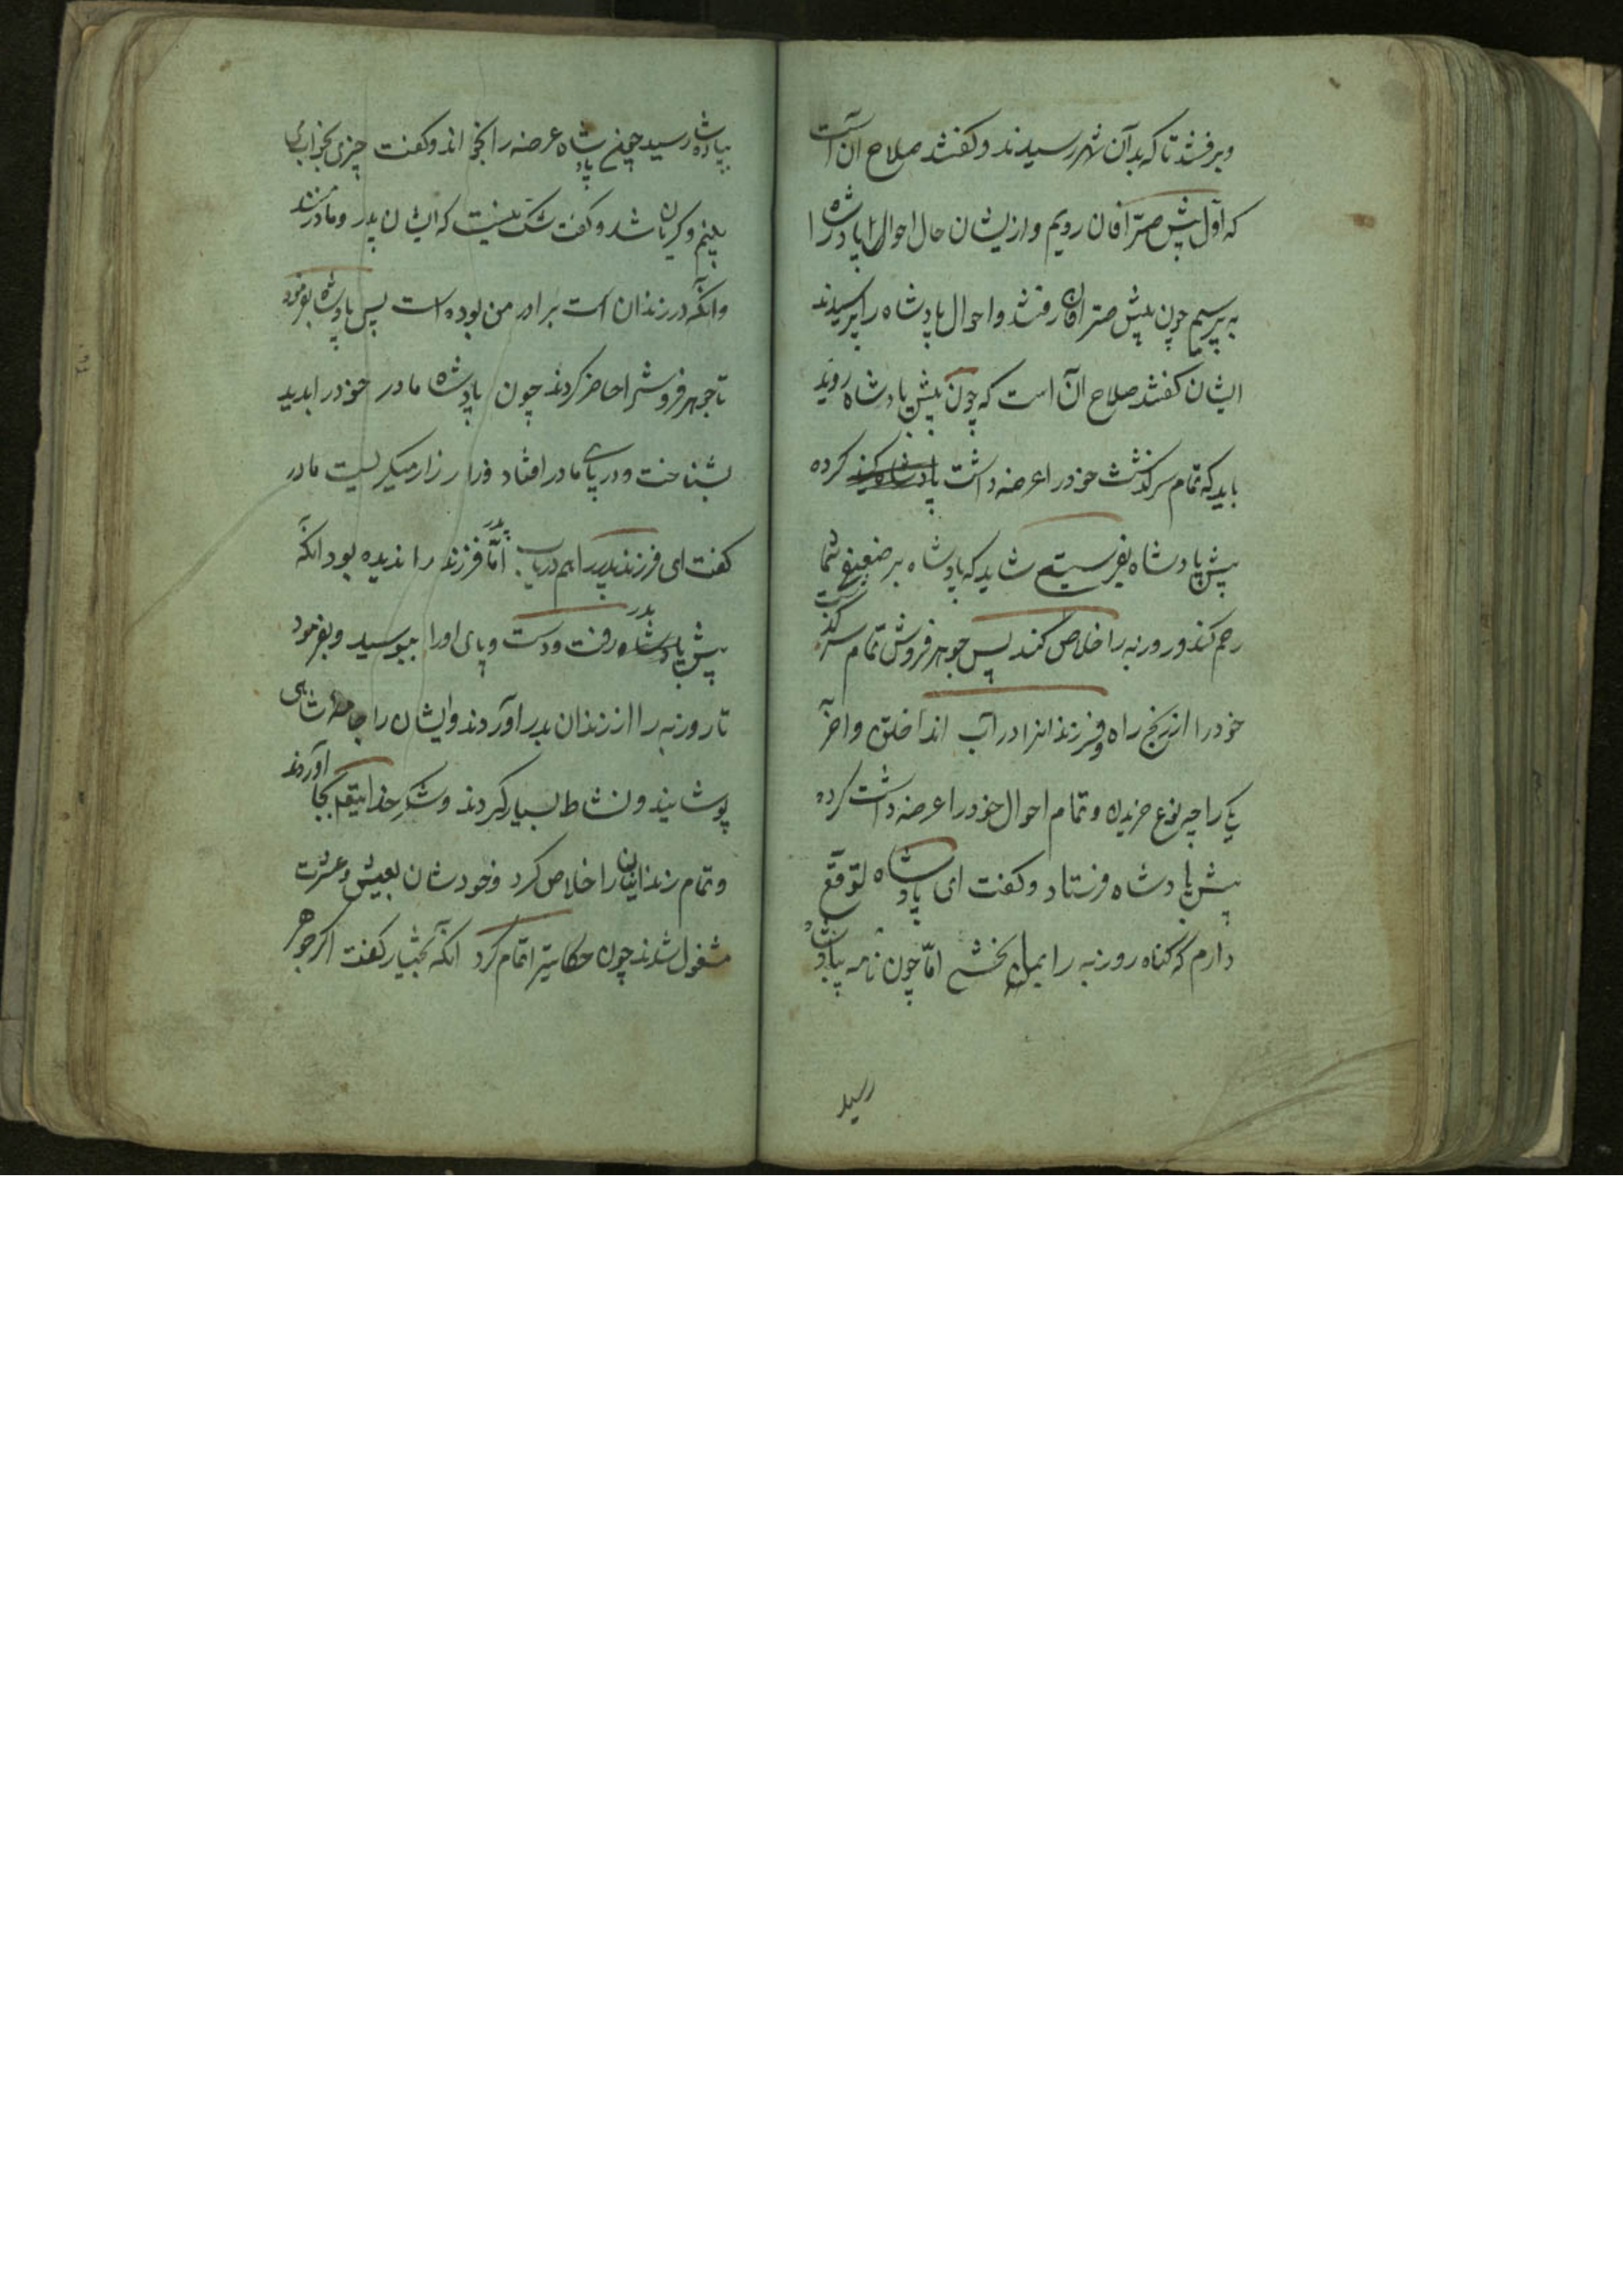 وبرفتند تا که بدآن شهر رسیدند و کفتند صلاح آن است
که اوّل پیش صرّافان رویم و از یشان حال احوال پادشاه را
به پرسیم چون پیش صرّافان رفتند و احوال پادشاه را پرسیدند
ایشان کفتند صلاح آن است که چون پیش پادشاه روید
باید که تمام سرکذشت خود را عرضه داشت کرده
پیش پادشاه بفرستید شاید که پادشاه بر ضعیفی شما
رحم کند و روزبه را خلاص کند پس جوهر فروش تمام سرکذشت
خود را از رنج راه و فرزندانرا در آب انداختن و آخر
یکی را چه نوع خریدن و تمام احوال خود را عرضه داشت کرده
پیش پادشاه فرستاد و کفت ای پادشاه توقّع
دارم که کناه روزبه را بمن بخشی امّا چون نامه بپادشاه
رسید
بپادشاه رسید چون پادشاه عرضه را بخواند و کفت چیزی بخواب
بینم و کریان شد و کفت شک نیست که ایشان پدر و مادر منند
وانکه در زندان است برادر من بوده است پس پادشاه بفرمود
تا جوهر فروش را حاضر کردند چون پادشاه مادر خود را بدید
بشناخت و در پای مادر افتاد و زار زار میکریست مادر
کفت ای فرزند پدر را هم دریاب امّا پدر فرزند را ندیده بود انکه
پیش پدر رفت و دست و پای اورا ببوسید و بفرمود
تا روزبه را از زندان بدر اوردند و ایشان را جامه شاهی
پوشانیدند و نشاط بسیار کردند و شکر خدایتعالی بجا آوردند
و تمام زندانیان را خلاص کرد و خودشان بعیش و عشرت
مشغول شدند چون حکایت را تمام کرد انکه بختیار کفت اکر جوهر